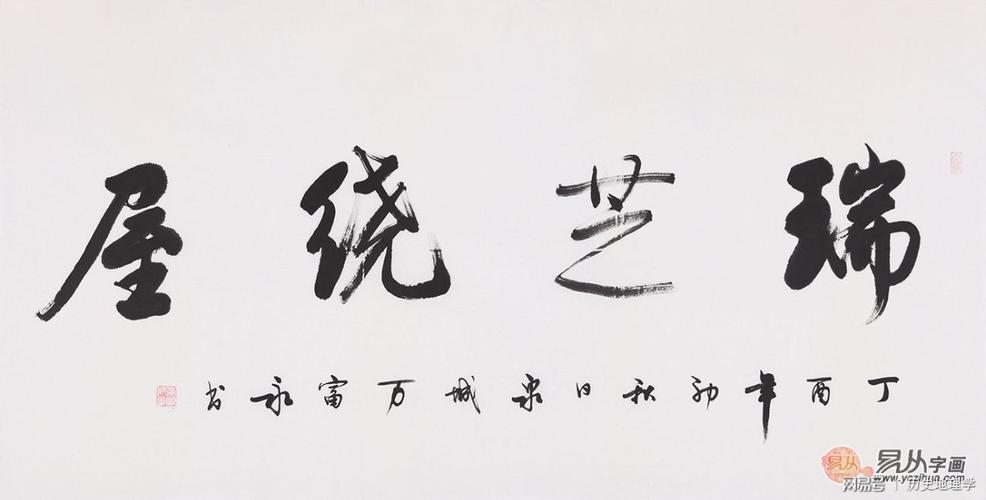 瑞芝绕屋
丁酉年初秋日泉城万富永书
易从字画
www.yczihua.com
网易号 | 历史地理学